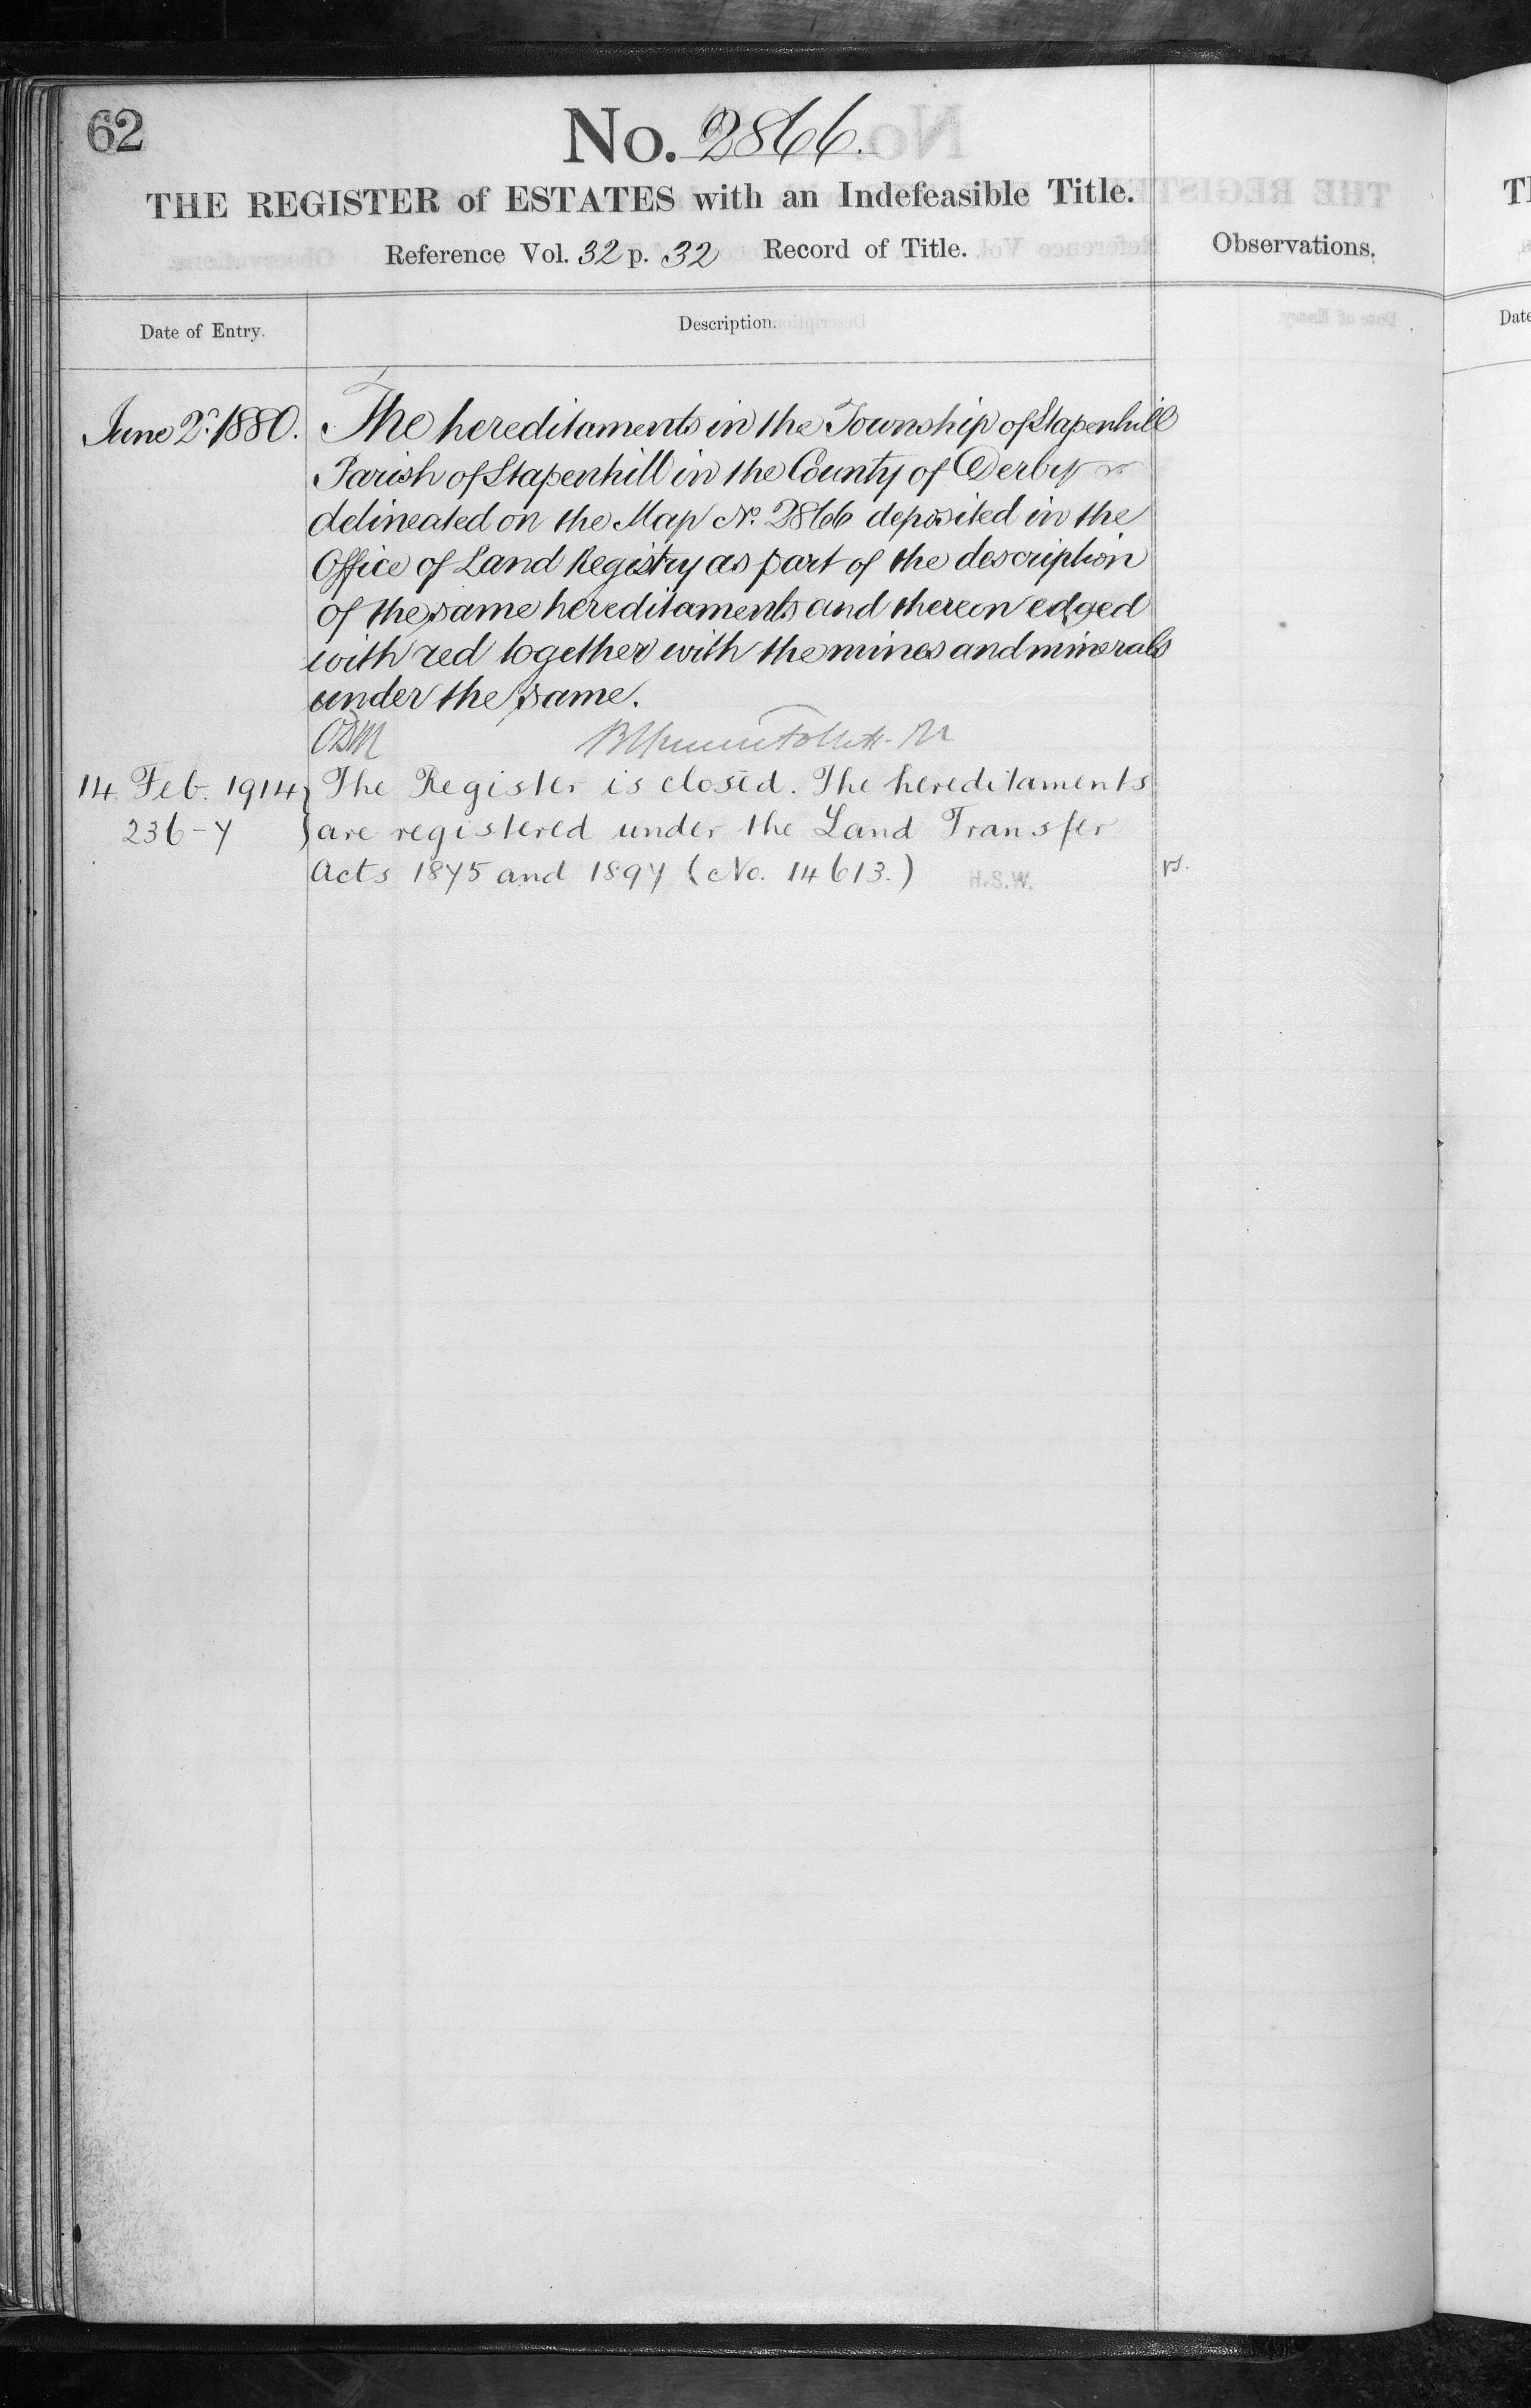 62
No. 2866.
THE REGISTER of ESTATES with an Indefeasible Title.
Reference Vol. 32 p. 32 Record of Title.
Observations.
Date of Entry.
Description.
June 2d. 1880.
The hereditaments in the Township of Stapenhill
Parish of Stapenhill in the County of Derby
delineated on the Map No. 2866 deposited in the
Office of Land Registry as part of the description
of the same hereditaments and thereon edged
with red together with the mines and minerals
under the same.
14. Feb. 1914
236-7
The Register is closed. The hereditaments
are registered under the Land Transfer
Acts 1875 and 1897 (No. 14613.) H.S.W.